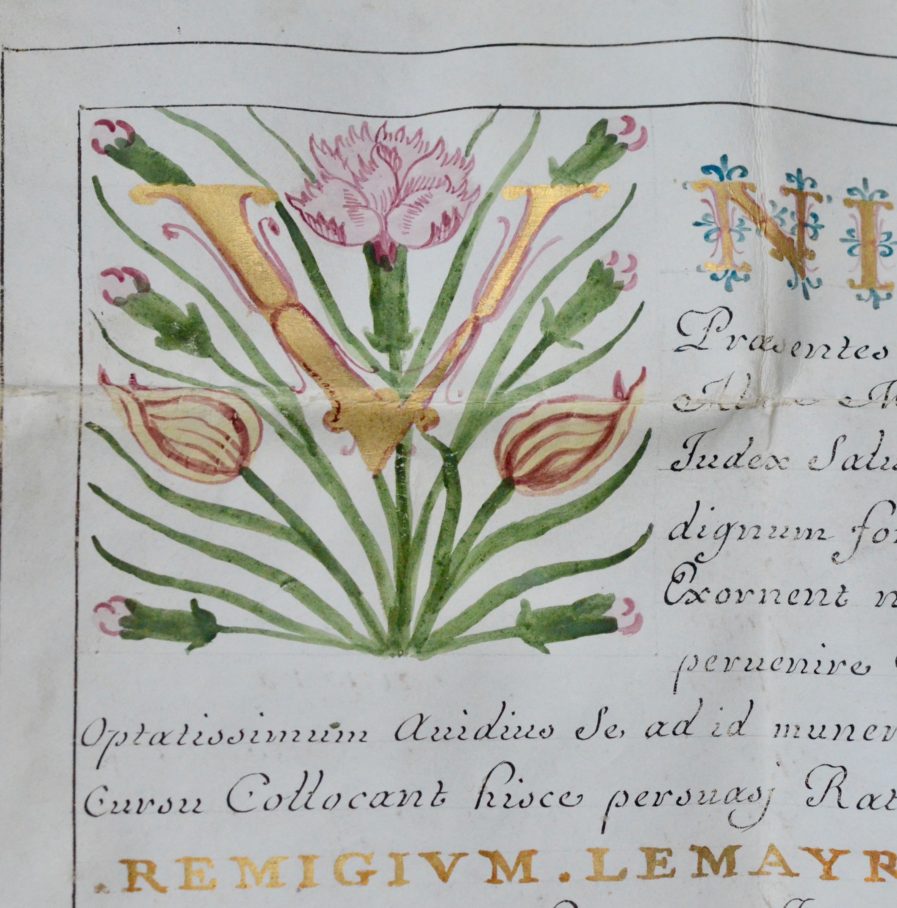 V NI
Præsentes
Index Salu
dignum for
Exornent n
peruenire
Optatissimum Auidius Se ad id muner
Cursu Collocant hisce persuasj Rat
.REMIGIVM.LEMAYR